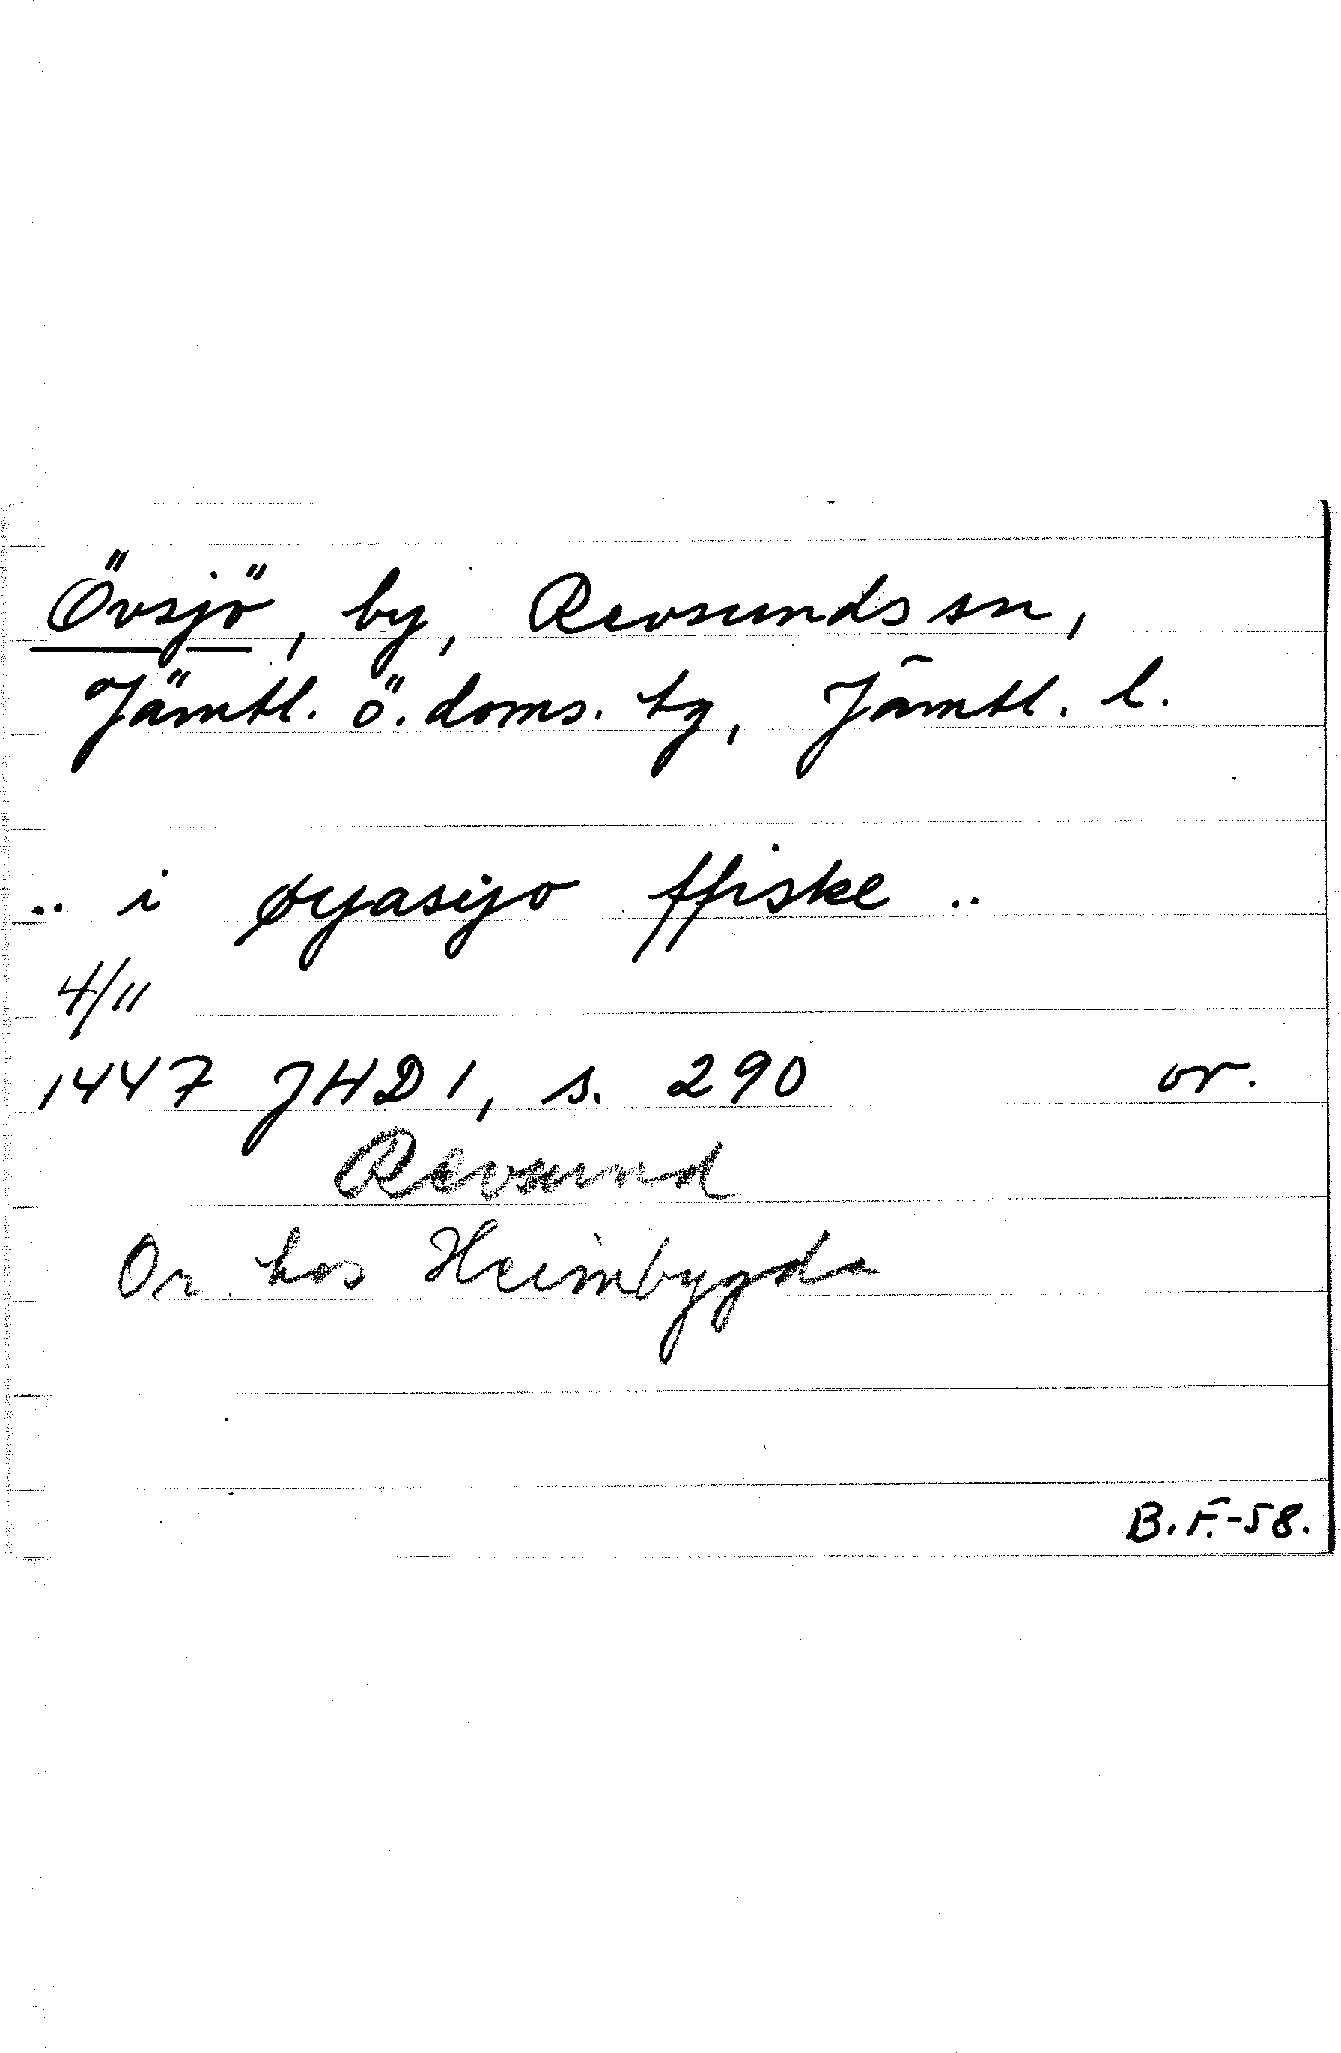 Övsjö, by, Revsunds sn,
Jämtl. ö. doms. tg, Jämtl. l.
.. i øyasijo ffiske ..
4/11
1447 JHD 1, s. 290 or.
Revsund
Or. hos Heimbygda
B.F.-58.